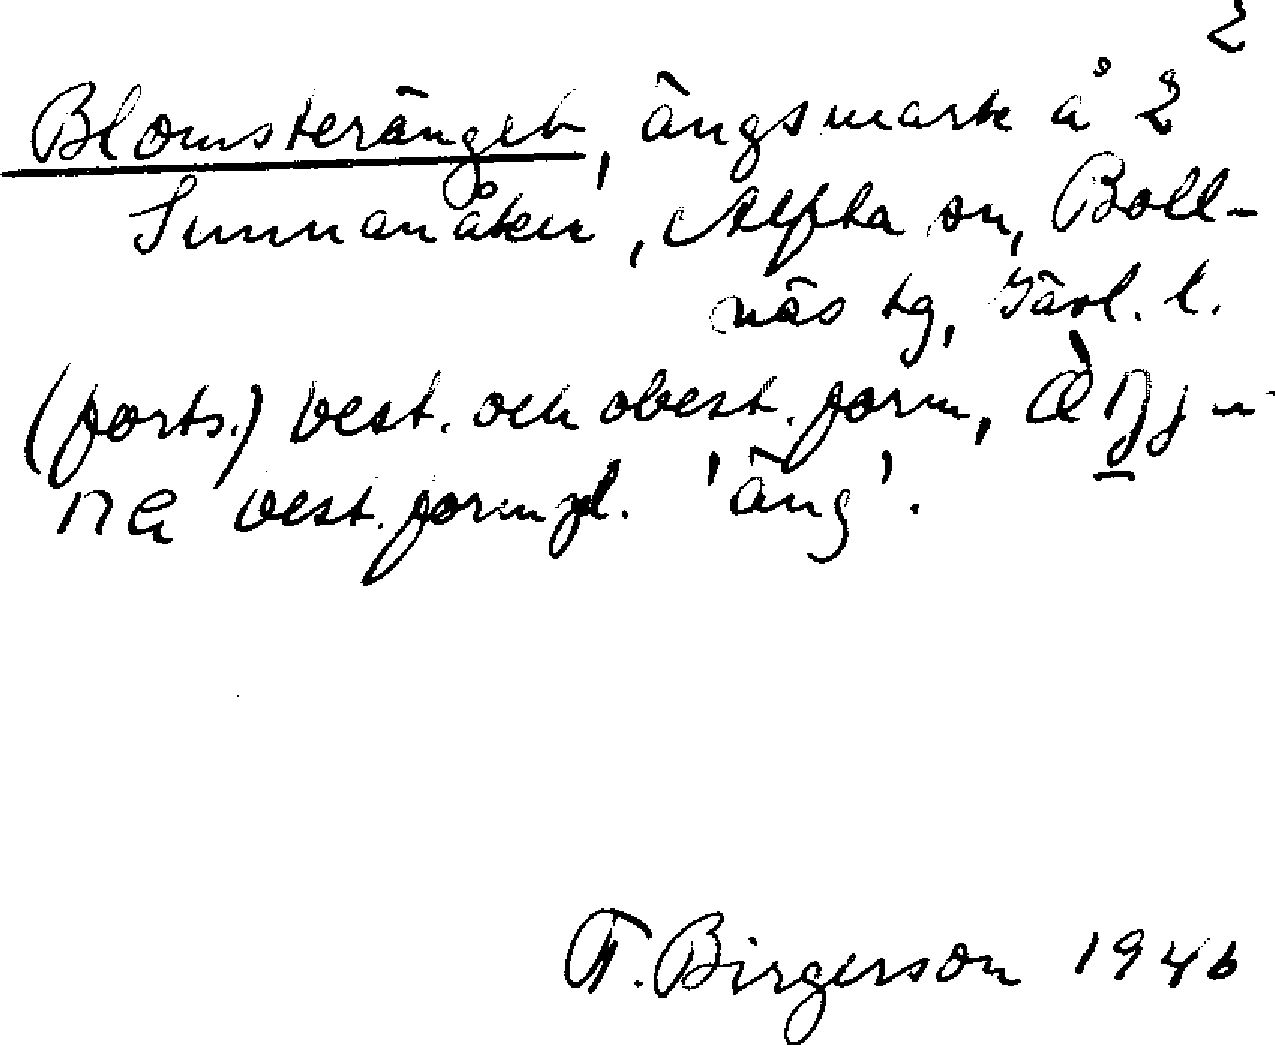 2
Blomsteränget, ängsmark å 2
Sunnanåker, Alfta sn, Boll-
näs tg, Gävl. l.
(forts.) best. och obest. form, æ̀ŋj-
na best. form pl. 'äng'.
T. Birgerson 1946